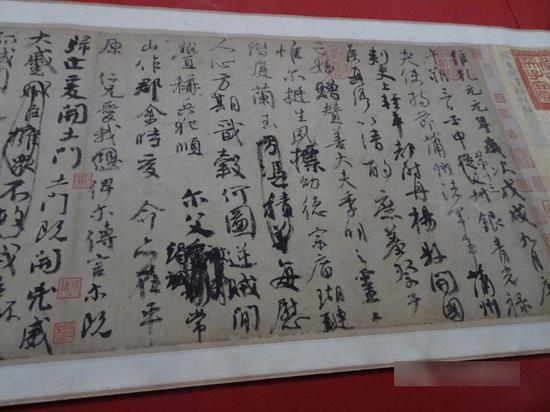 維乾元元年歲次戊戌九月庚
午朔三日壬申第十三叔銀青光祿
夫使持節蒲州諸軍事蒲州
刺史上輕車都尉丹楊縣開國
侯真卿以清酌庶羞祭于
亡姪贈贊善大夫季明之靈曰
惟爾挺生夙標幼德宗廟瑚璉
階庭蘭玉方憑積善每慰
人心方期戩穀何圖逆賊間
釁稱兵犯順爾父竭誠常
山作郡余時受命亦在平
原仁兄愛我恐俾爾傳言爾既
歸止爰開土門土門既開凶威
大蹙賊臣擁衆不救